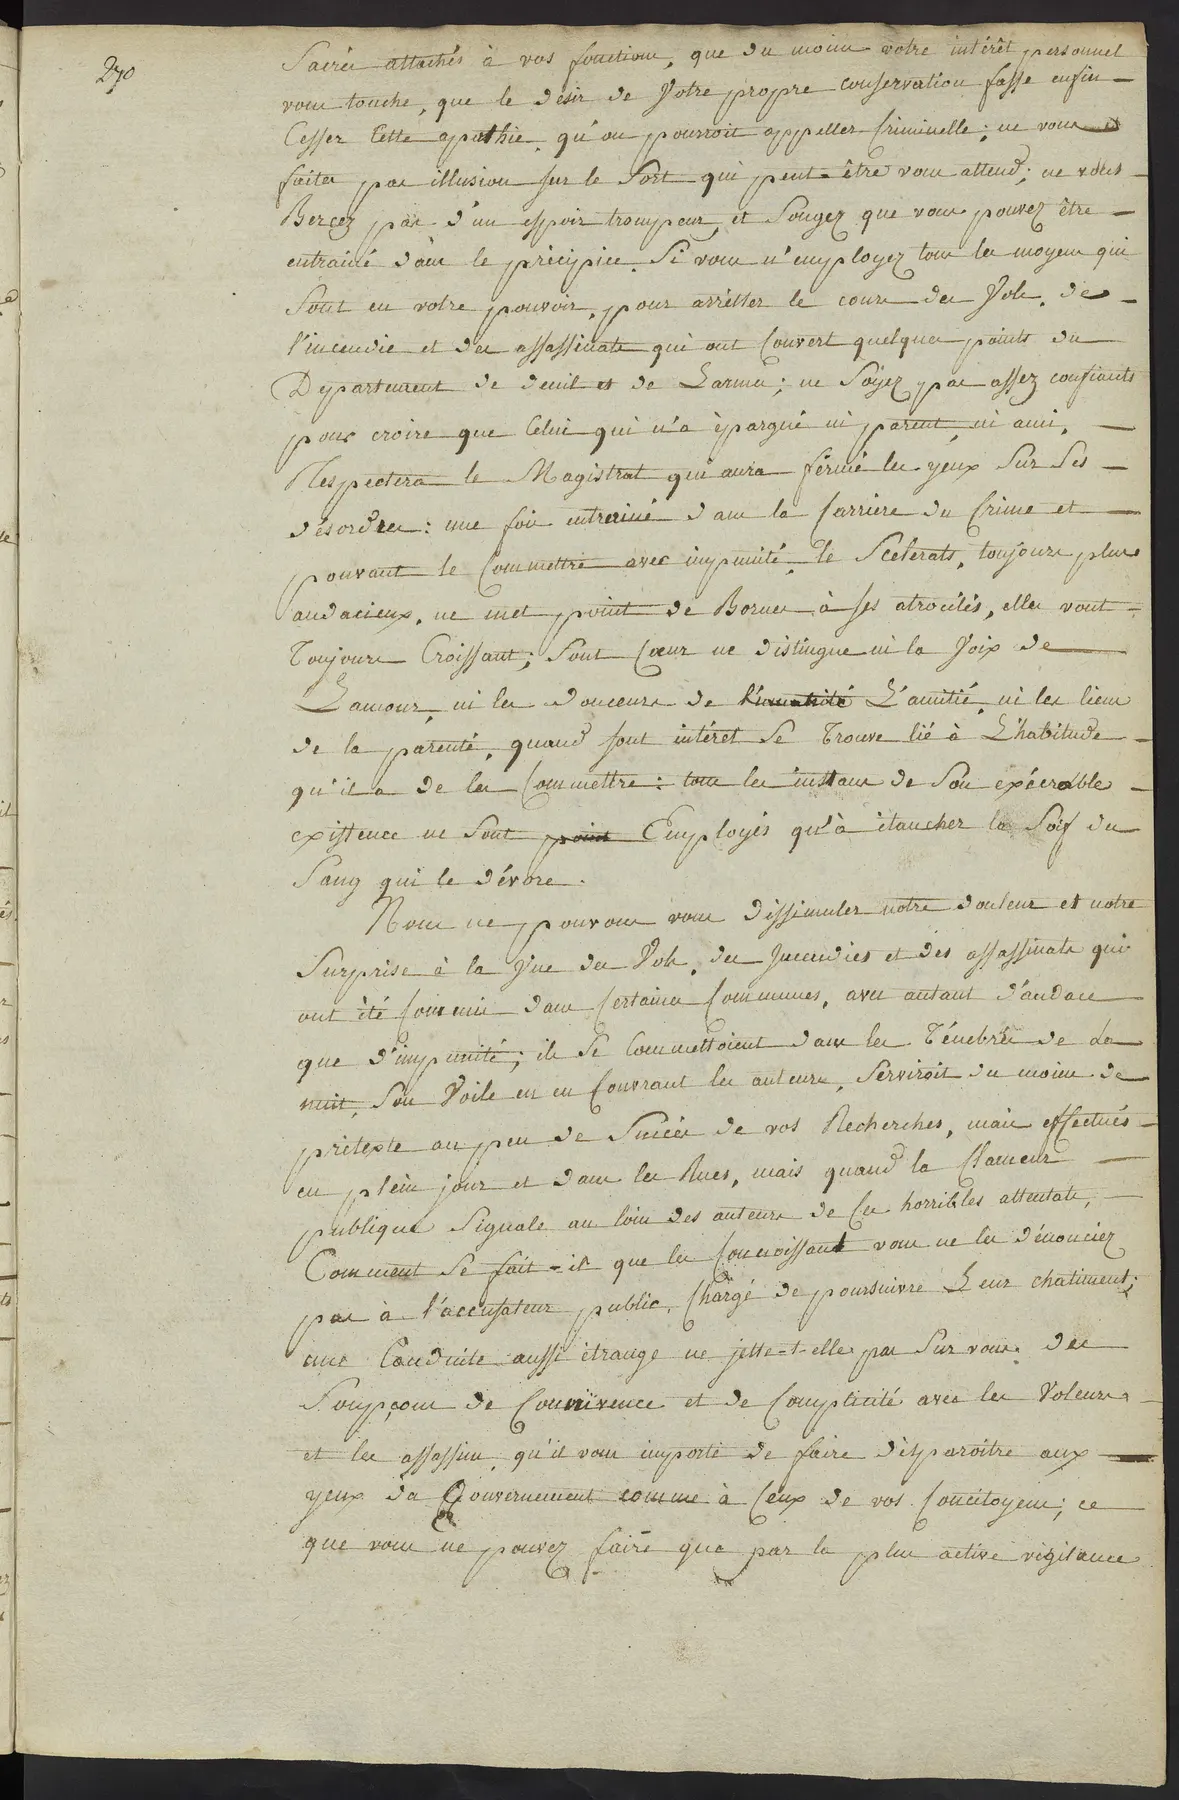 270
Sacrés attachés à vos fonctions, que du moins votre intérêt personnel
vous touche, que le desir de Votre propre conservation fasse enfin
Cesser Cette apathie, qu'on pourroit appeller Criminelle; ne vous
faites pas illusion sur le Sort qui peut-être vous attend; ne vous
Bercez pas d'un espoir trompeur, et Songez que vous pouvez être
entrainé dans le précipice Si vous n'employez tous les moyens qui
Sont en votre pouvoir, pour arrêtter le cours des Vols, de
l'incendie et des assassinats qui ont Couvert quelques points du
Département de deuil et de Larmes; ne Soyez pas assez confiants
pour croire que Celui qui n'a èpargné ni parent, ni ami,
Respectera le Magistrat qui aura fermé les yeux Sur Ses
désordres: une fois entrainé dans la Carriere du Crime et
pouvant le Commettre avec impunité, le Scelerats, toujours plus
audacieux, ne met point de Bornes à ses atrocités, elles vont
Toujours Croissant; Sont Cœur ne distingue ni la Voix de
Lamour, ni les douceurs de l'humanité L'amitié, ni les liens
de la parenté, quand sont intéret Se Trouve lié à L'habitude
qu'il a de les Commettre: tous les instans de Son exécrable
existence ne Sont point Employés qu'à étancher la Soif du
Sang qui le dévore.
Nous ne pouvons vous dissimuler notre douleur et notre
Surprise à la Vue des Vols, des Incendies et des assassinats qui
ont été Commis dans Certaines Communes, avec autant d'audace
que d'impunité; ils Se Commettoient dans les Ténebres de La
nuit, Son Voile en en Couvrant les auteurs, Serviroit du moins de
prétexte au peu de Succès de vos Recherches, mais effectués
en plein jour et dans les Rues, mais quand la Clameur
publique Signale au loin des auteurs de Ces horribles attentats,
Comment Se fait-il que les Connoissant vous ne les dénonciez
pas à l'accusateur public, Chargé de poursuivre Leur chatiment;
une Conduite aussi étrange ne jette-t-elle pas Sur vous des
Soupçons de Connivence et de Complicité avec les Voleurs
et les assassins, qu'il vous importe de faire disparoitre aux
yeux du Gouvernement comme à Ceux de vos Concitoyens; ce
que vous ne pouvez faire que par la plus active vigilance